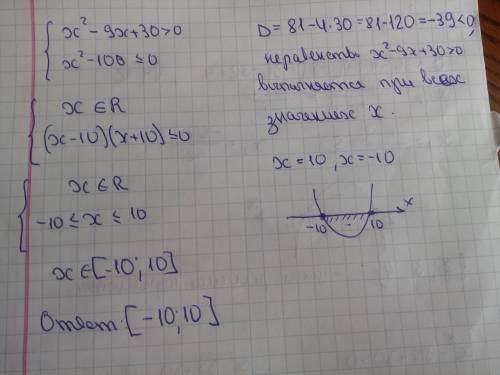 { x² - 9x + 30 > 0
x² - 100 ≤ 0
{ x ∈ R
(x-10)(x+10) ≤ 0
{ x ∈ R
-10 ≤ x ≤ 10
x ∈ [-10; 10]
Ответ: [-10; 10]
D = 81 - 4·30 = 81 - 120 = -39 < 0,
неравенство x² - 9x + 30 > 0
выполняется при всех
значениях x.
x = 10, x = -10
x
-10 - 10